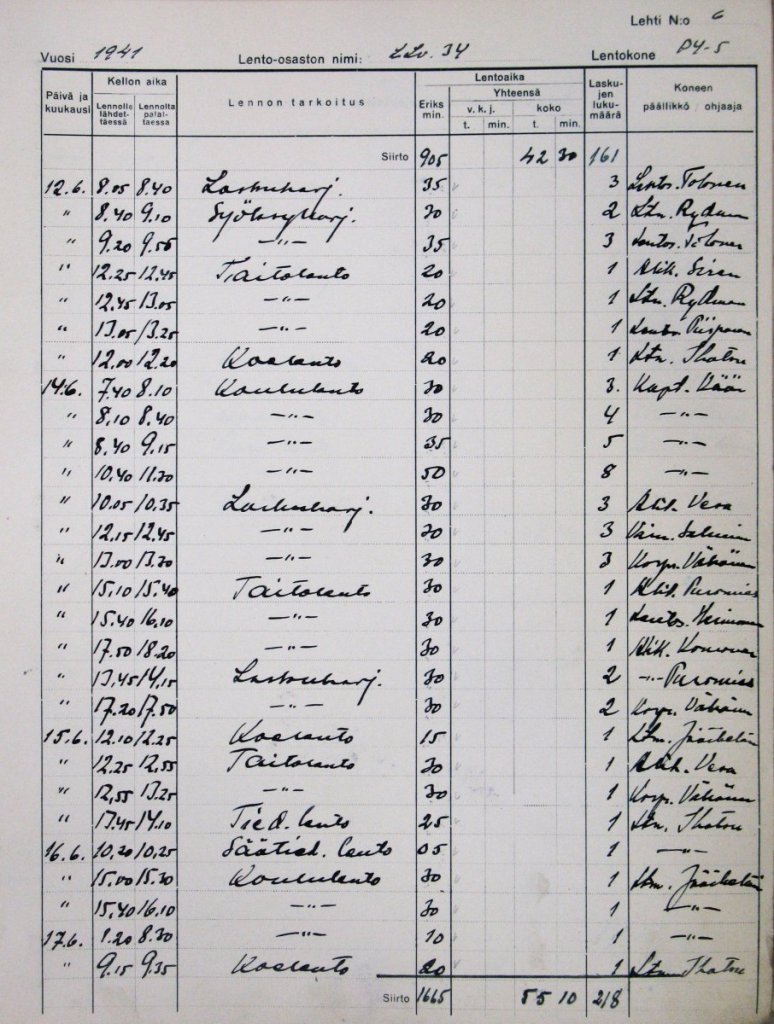 Lehti N:o 6
Vuosi 1941 Lento-osaston nimi: LLv. 34 Lentokone PY-5
Päivä ja kuukausi Kellon aika Lennolle lähdettäessä Lennolta palattaessa Lennon tarkoitus Lentoaika Eriks min. Yhteensä v. k. j. t. min. koko t. min. Laskujen lukumäärä Koneen päällikkö / ohjaaja
Siirto 905 42 30 161
12.6. 8.05 8.40 Laskuharj. 35 3 Lentos. Tolonen
" 8.40 9.10 Syöksyharj. 30 2 Ltn. Rydman
" 9.20 9.55 —"— 35 3 Lentos. Tolonen
" 12.25 12.45 Taitolento 20 1 Alik. Siren
" 12.45 13.05 —"— 20 1 Ltn. Rydman
" 13.05 13.25 —"— 20 1
" 12.00 12.20 Koelento 20 1 Ltn.
14.6. 7.40 8.10 Koululento 30 3. Kapt.
" 8.10 8.40 —"— 30 4 —"—
" 8.40 9.15 —"— 35 5 —"—
" 10.40 11.30 —"— 50 8 —"—
" 10.05 10.35 Laskuharj. 30 3 Alik. Vesa
" 12.15 12.45 —"— 30 3
" 13.00 13.30 —"— 30 3 Korp.
" 15.10 15.40 Taitolento 30 1 Alik. Puromies
" 15.40 16.10 —"— 30 1 Lentos.
" 17.50 18.20 —"— 30 1 Alik.
" 13.45 14.15 Laskuharj. 30 2 —"— Puromies
" 17.20 17.50 —"— 30 2 Korp.
15.6. 12.10 12.25 Koelento 15 1
" 12.25 12.55 Taitolento 30 1 Alik. Vesa
" 12.55 13.25 —"— 30 1 Korp.
" 13.45 14.10 Tied. lento 25 1 Ltn.
16.6. 10.20 10.25 Säätied. lento 05 1 —"—
" 15.00 15.30 Koululento 30 1
" 15.40 16.10 —"— 30 1 —"—
17.6. 8.30 —"— 10 1 —"—
" 9.15 9.35 Koelento 20 1 Ltn.
Siirto 1665 55 10 218